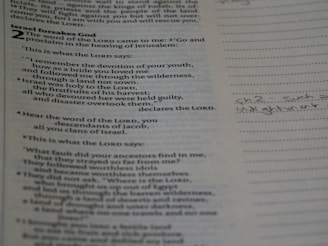 land, against the kings of Judah, its of-
ficials, its priests and the people of the
fight against you but will not over-
come you, for I am with you and will rescue you,"
declares the LORD.
Israel Forsakes God
2 The word of the LORD came to me: "Go and
proclaim in the hearing of Jerusalem:
"This is what the LORD says:
"'I remember the devotion of your youth,
how as a bride you loved me
and followed me through the wilderness,
through a land not sown.
Israel was holy to the LORD,
the firstfruits of his harvest;
all who devoured her were held guilty,
and disaster overtook them,'"
declares the LORD.
Hear the word of the LORD, you
descendants of Jacob,
all you clans of Israel.
This is what the LORD says:
"What fault did your ancestors find in me,
that they strayed so far from me?
They followed worthless idols
and became worthless themselves.
They did not ask, 'Where is the LORD,
who brought us up out of Egypt
and led us through the barren wilderness,
through a land of deserts and ravines,
a land of drought and utter darkness,
a land where no one travels and no one
lives?'
I brought you into a fertile land
to eat its fruit and rich produce.
But you came and defiled my land
ch 2